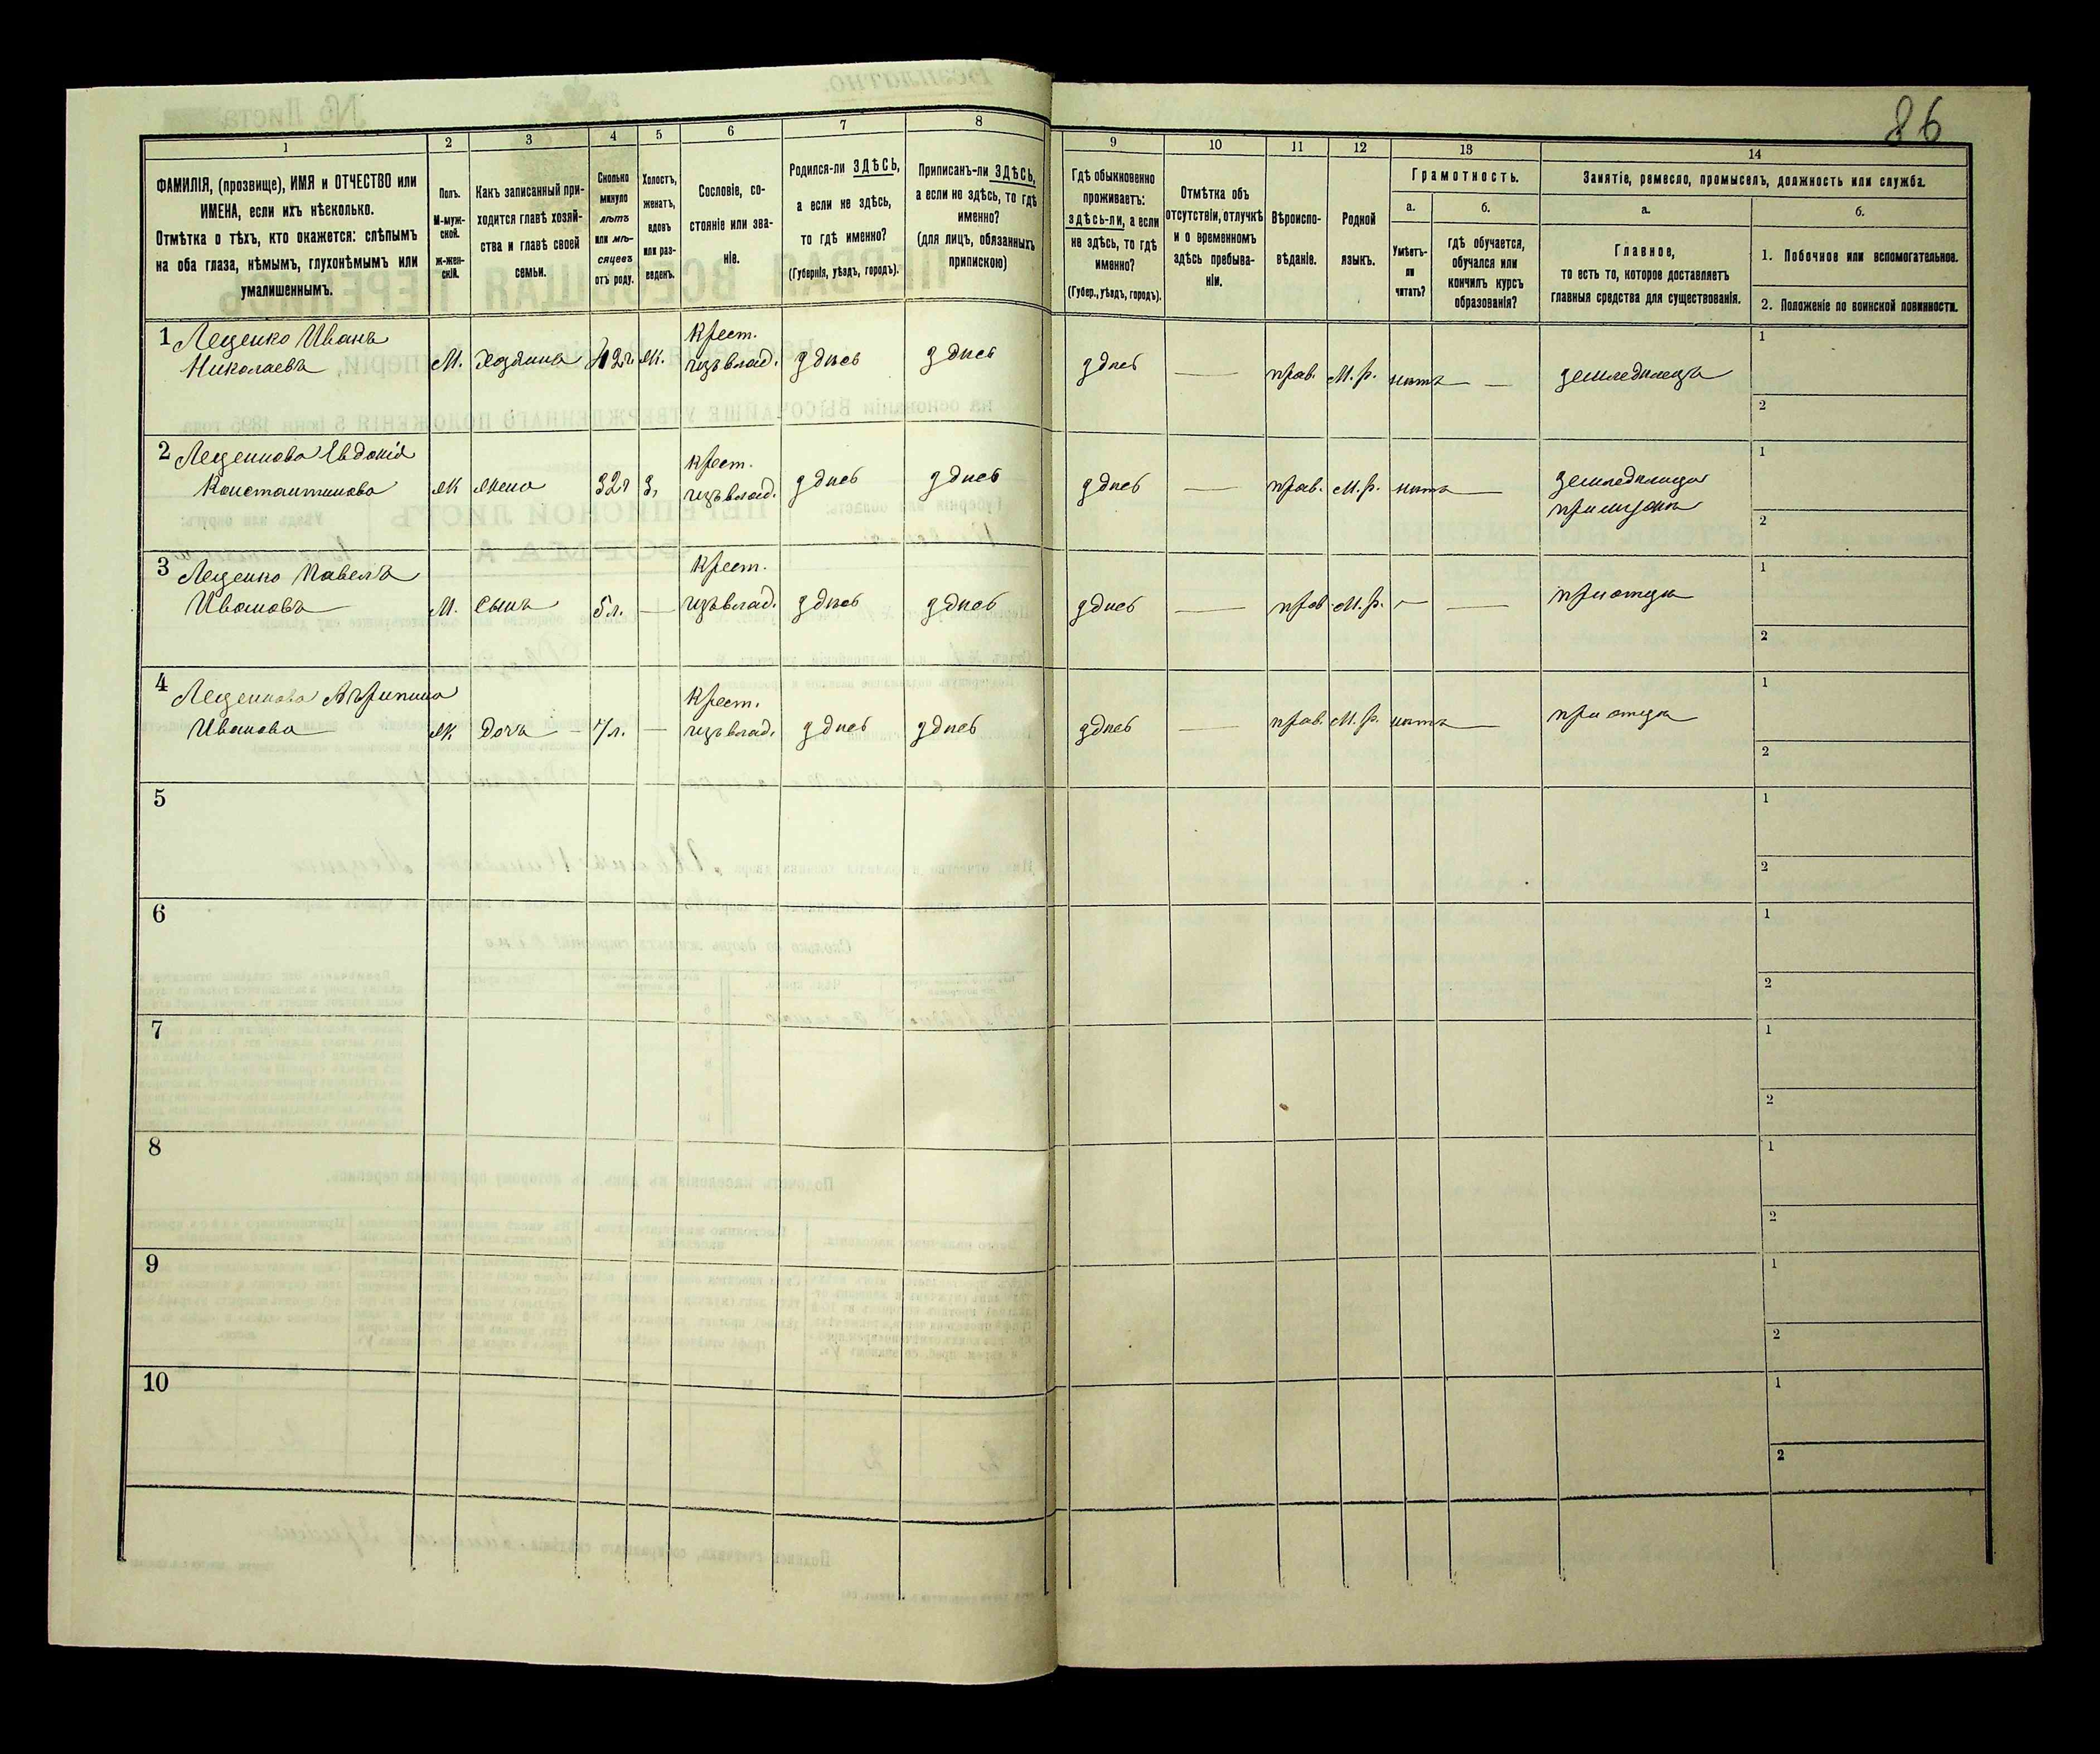 86
1
2
3
4
5
6
7
8
ФАМИЛІЯ, (прозвище), ИМЯ и ОТЧЕСТВО или
ИМЕНА, если ихъ нѣсколько.
Отмѣтка о тѣхъ, кто окажется: слѣпымъ
на оба глаза, нѣмымъ, глухонѣмымъ или
умалишеннымъ.
Полъ.
М-муж-
ской.
ж-жен-
скій.
Какъ записанный при-
ходится главѣ хозяй-
ства и главѣ своей
семьи.
Сколько
минуло
лѣтъ
или мѣ-
сяцевъ
отъ роду.
Холостъ,
женатъ,
вдовъ
или раз-
веденъ.
Сословіе, со-
стояніе или зва-
ніе.
Родился-ли ЗДѢСЬ,
а если не здѣсь,
то гдѣ именно?
(Губернія, уѣздъ, городъ).
Приписанъ-ли ЗДѢСЬ,
а если не здѣсь, то гдѣ
именно?
(для лицъ, обязанныхъ
припискою)
9
10
11
12
13
14
Гдѣ обыкновенно
проживаетъ:
здѣсь-ли, а если
не здѣсь, то гдѣ
именно?
(Губер., уѣздъ, городъ).
Отмѣтка объ
отсутствіи, отлучкѣ
и о временномъ
здѣсь пребыва-
ніи.
Вѣроиспо-
вѣданіе.
Родной
языкъ.
Грамотность.
а.
б.
Умѣетъ-
ли
читать?
гдѣ обучается,
обучался или
кончилъ курсъ
образованія?
Занятіе, ремесло, промыселъ, должность или служба.
а.
б.
Главное,
то есть то, которое доставляетъ
главныя средства для существованія.
1. Побочное или вспомогательное.
2. Положеніе по воинской повинности.
1 Лещенко Иванъ
Николаевъ М. Хозяинъ 42г. Ж. Крест. изъ влад. здѣсь здѣсь здѣсь — прав. М.р. нѣтъ — земледѣлецъ
1
2
2 Лещенкова Евдокія
Константинова Ж жена 32г З. Крест. изъ влад. здѣсь здѣсь здѣсь — прав. М.р. нѣтъ — земледѣлица
при мужѣ
1
2
3 Лещенко Павелъ
Ивановъ М. Сынъ 5л. — Крест. изъ влад. здѣсь здѣсь здѣсь — прав. М.р. — — при отцѣ
1
2
4 Лещенкова Агрипина
Иванова Ж Дочь 7л. — Крест. изъ влад. здѣсь здѣсь здѣсь — прав. М.р. нѣтъ — при отцѣ
1
2
5
1
2
6
1
2
7
1
2
8
1
2
9
1
2
10
1
2